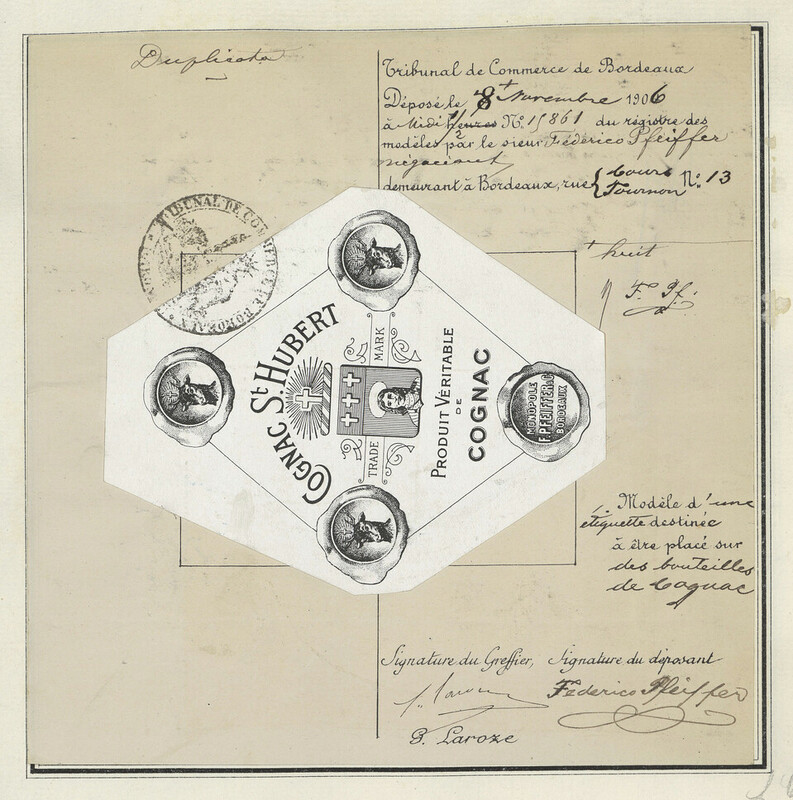 Duplicata
Tribunal de Commerce de Bordeaux
Déposé le 8 Novembre 1906
à Midi 1/2 heures No. 15861 du registre des
modèles par le sieur Féderico Pfeiffer
négociant
demeurant à Bordeaux, rue Cours Tournon No. 13
TRIBUNAL DE COMMERCE DE BORDEAUX
+ huit
F. Pf.
COGNAC St. HUBERT
TRADE MARK
PRODUIT VÉRITABLE
DE
COGNAC
MONOPOLE
F. PFEIFFER & C
BORDEAUX
Modèle d'une
étiquette destinée
à être placé sur
des bouteilles
de Cognac
Signature du Greffier, Signature du déposant
Federico Pfeiffer
G. Laroze